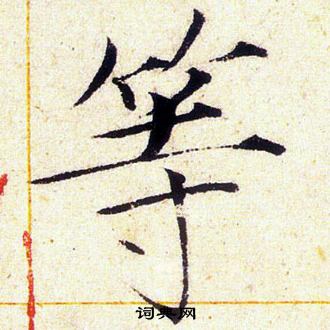 等
词典网